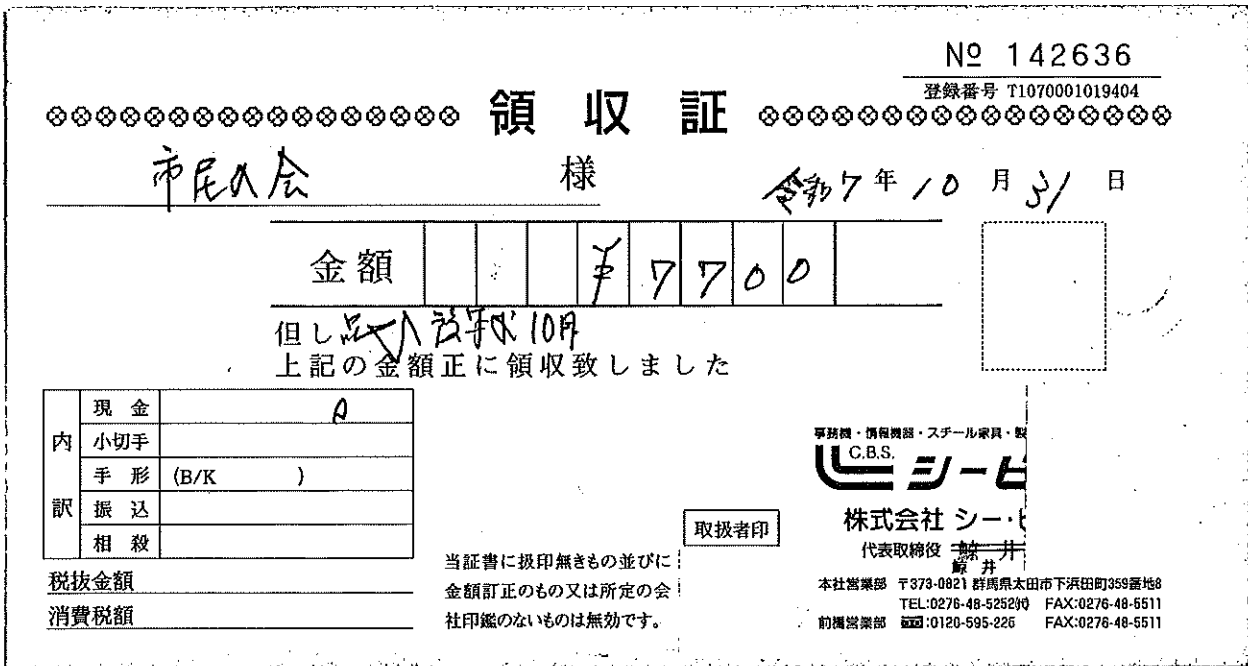 № 142636
登録番号 T1070001019404
領収証
市民の会 様
令和7年10月31日
金額 ¥7700
但し 10月
上記の金額正に領収致しました
内訳
現金
小切手
手形 (B/K )
振込
相殺
税抜金額
消費税額
当証書に扱印無きもの並びに
金額訂正のもの又は所定の会
社印鑑のないものは無効です。
取扱者印
事務機・情報機器・スチール家具・製
C.B.S.
シービ
株式会社 シー・ビ
代表取締役 鯨井
鯨井
本社営業部 〒373-0821 群馬県太田市下浜田町359番地8
TEL:0276-48-5252㈹ FAX:0276-48-5511
前橋営業部 :0120-595-226 FAX:0276-48-5511